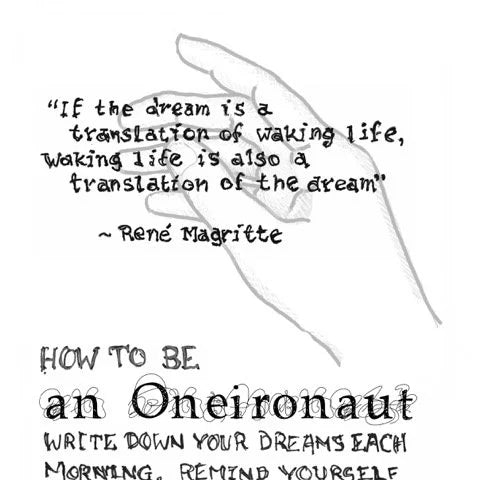 “If the dream is a
translation of waking life,
waking life is also a
translation of the dream”
~ René Magritte
HOW TO BE
an Oneironaut
WRITE DOWN YOUR DREAMS EACH
MORNING. REMIND YOURSELF